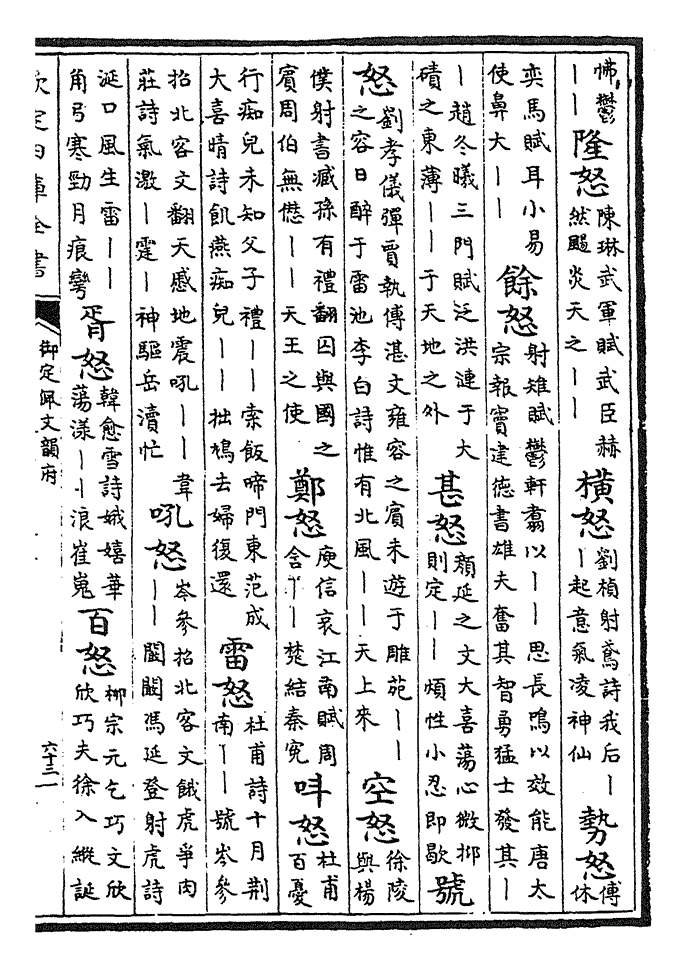 怫鬱｜｜隆怒陳琳武軍賦武臣赫然颺炎天之｜｜橫怒劉楨射鳶詩我后｜｜起意氣凌神仙勢怒傅休
奕馬賦耳小易使鼻大｜｜餘怒射雉賦鬱軒翥以｜｜思長鳴以效能唐太宗報竇建德書雄夫奮其智勇猛士發其｜
｜趙冬曦三門賦泛洪漣于大磧之東薄｜｜于天地之外甚怒顏延之文大喜蕩心微抑則定｜｜煩性小忍即歇號
怒劉孝儀彈賈執傅湛文雍容之賓未遊于雕苑｜｜之容日醉于雷池李白詩惟有北風｜｜天上來空怒徐陵與楊
僕射書臧孫有禮翻囚與國之賓周伯無僭｜｜天王之使鄭怒庾信哀江南賦周含｜｜楚結秦寃呌怒杜甫百憂
行痴兒未知父子禮｜｜索飯啼門東范成大喜晴詩飢燕痴兒｜｜拙鳩去婦復還雷怒杜甫詩十月荆南｜｜號岑參
招北客文翻天慼地震吼｜｜韋莊詩氣激｜霆｜神驅岳瀆忙吼怒岑參招北客文餓虎爭肉｜｜闞闞馮延登射虎詩
涎口風生雷｜｜角弓寒勁月痕彎胥怒韓愈雪詩娥嬉華蕩漾｜｜浪崔嵬百怒柳宗元乞巧文欣欣巧夫徐入縱誕
欽定四庫全書
御定佩文韻府
六十三